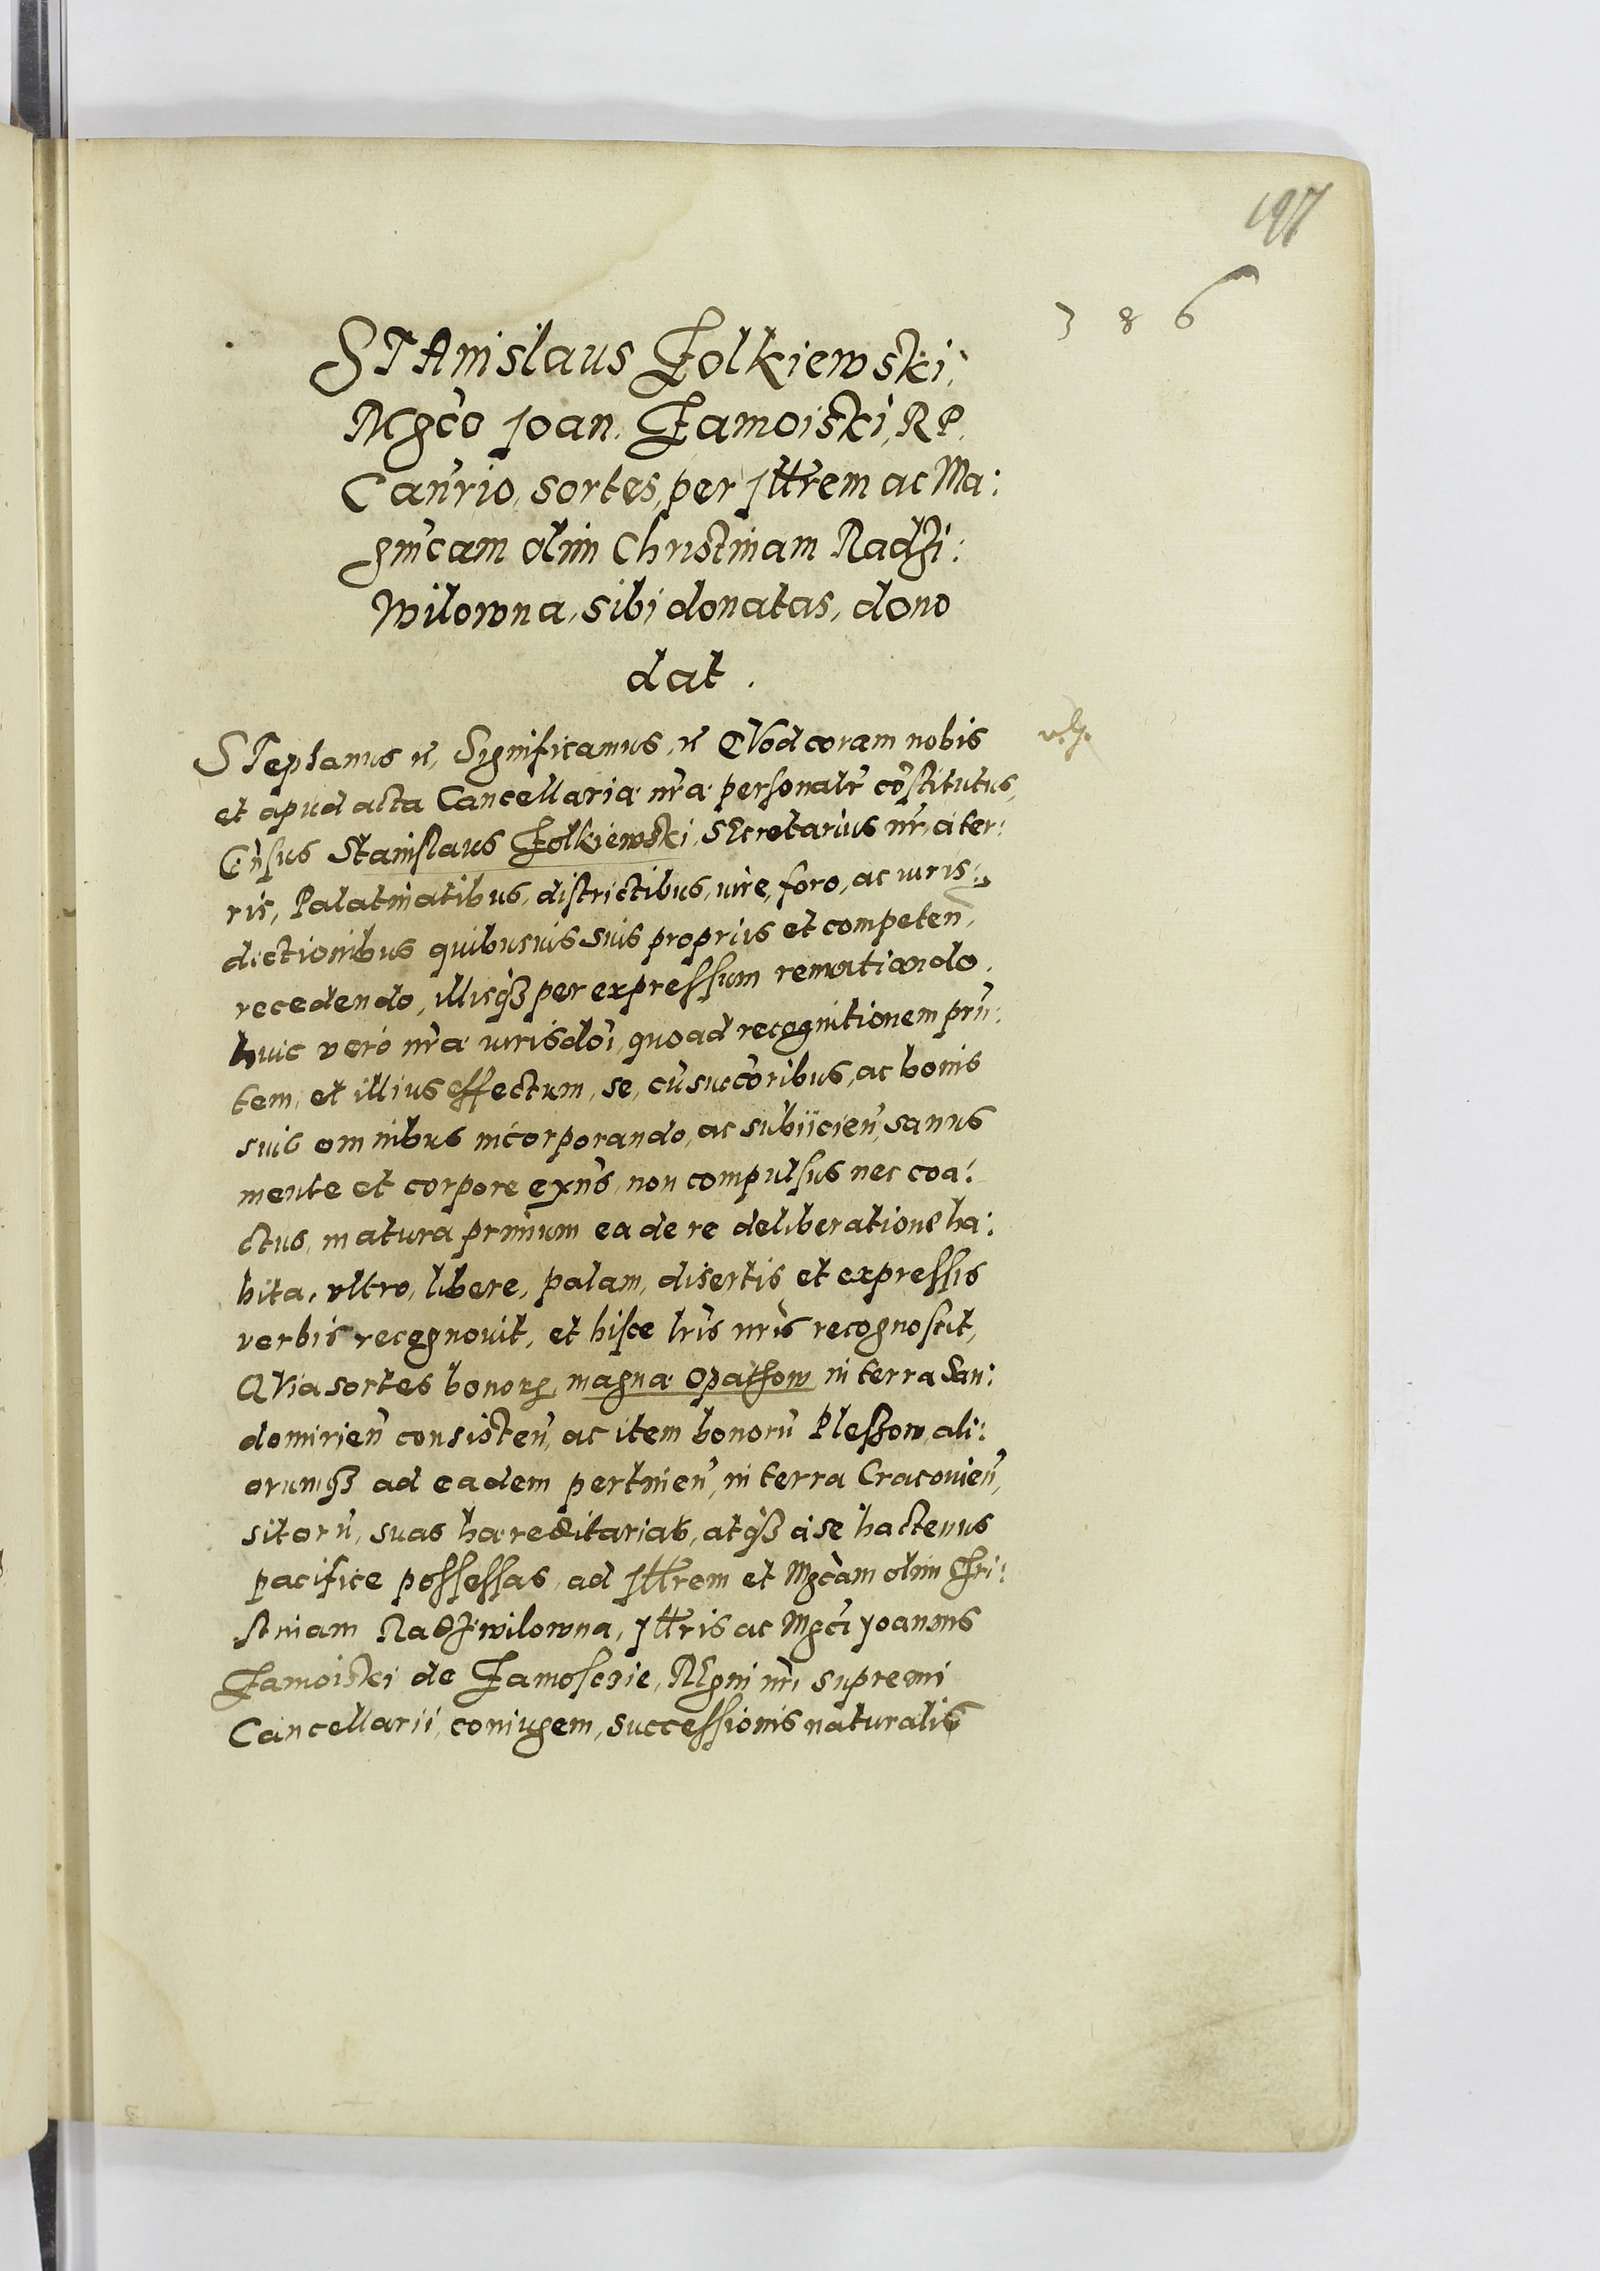 197
386
STAnislaus Zolkiewski,
Mgco Joan. Zamoiski, RP.
Canrio, sortes, per Jllrem ac Ma:
gnicam olim Christinam Radzi:
wilowna, sibi donatas, dono
dat.
STephanus etc, Significamus, etc QVod coram nobis
et apud acta Cancellariæ nræ personalr cõstitutus,
Gñsus Stanislaus Zolkiewski, SEcretarius nr, a ter:
ris, Palatinatibus, districtibus, iure, foro, ac iuris:
dictionibus quibusuis suis propriis et competeñ,
recedendo, illisqȝ per expressum renuntiando,
huic vero nræ iurisdoi, quoad recognitionem prñ:
tem, et illius effectum, se, cũ succoribus, ac bonis
suis omnibus incorporando, ac subiicieñ, sanus
mente et corpore exñs, non compulsus nec coa:
ctus, matura primum ea de re deliberatione ha:
bita, vltro, libere, palam, disertis et expressis
verbis recognovit, et hisce lris nris recognoscit,
QVia sortes bonoꝝ, magna Opathow in terra San:
domirieñ consisteñ, ac item bonorũ Pleszow, ali:
orumqȝ ad eadem pertineñ, in terra Cracovieñ,
sitorũ, suas hæreditarias, atqȝ a se hactenus
pacifice possessas, ad Jllrem et Mgcam olim Chri:
stinam Radziwilowna, Jllris ac Mgci Joannis
Zamoiski de Zamoscie, REgni nri supremi
Cancellarii, coniugem, successionis naturalis